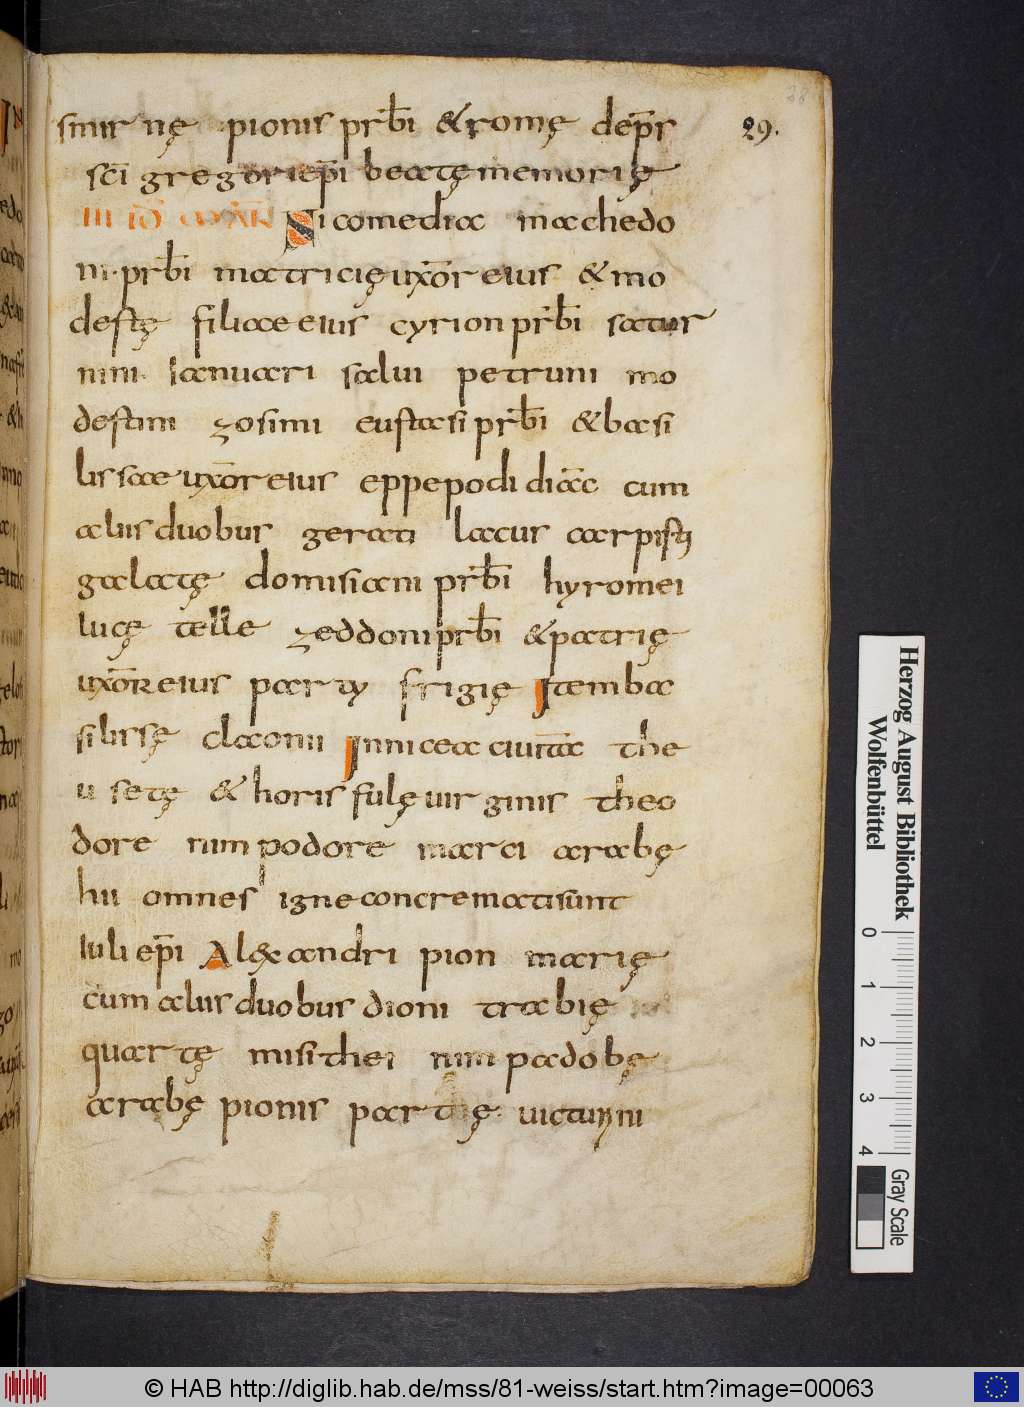 smirnę pionis prb̄i & romę dep̄r
29.
sc̄i gregori ep̄i beatę memorię
IIII ID̄ MAR̄ Nicomedia machedo
ni prb̄i matricię ux̄or eius & mo
destę filiae eius cyrion prb̄i satur
nini Ianuari salui petruni mo
destini zosimi eustasi prb̄i & basi
lissae ux̄or eius eppepodi diāc cum
aliis duobus gerati lacus carpisti
galatę domisiani prb̄i hyromei
lucę telle zeddoni prb̄i & patrię
ux̄or eius party frigię Item ba
silissę claconii In nicea ciuitā the
usetę & horis fulę uirginis theo
dore nimpodore marci arabę
hii omnes igne concremati sunt
Iuli ep̄i Alexandri pion marię
cum aliis duobus dioni trabię
quartę misithei nimpadobę
arabę pionis partię uicturini
Herzog August Bibliothek
Wolfenbüttel
0 1 2 3 4
Gray Scale
© HAB http://diglib.hab.de/mss/81-weiss/start.htm?image=00063